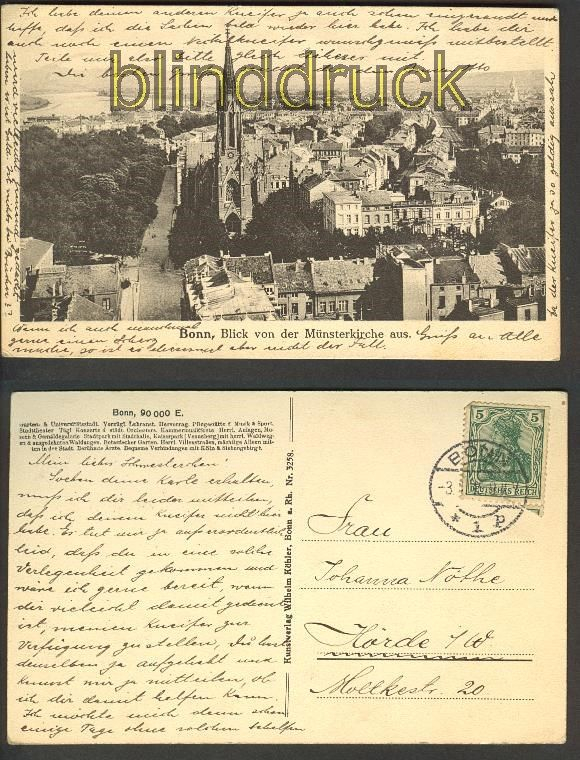 Ich habe deinen anderen Kneifer ja auch schon eingesandt und
hoffe, daß ich die Sachen bald wieder hier habe. Ich habe dir
auch noch einen Nickelkneifer wunschgemäß mitbestellt
blinddruck
Bonn, Blick von der Münsterkirche aus. Gruß an Alle
Wenn ich auch manchmal
gerne einen
mache, so ist es aber nicht der Fall.
Bonn, 90 000 E.
Garten- & Universitätsstadt. Vorzügl. Lehranst. Hervorrag. Pflegestätte f. Musik & Sport.
Stadttheater Tägl Konzerte d städt. Orchesters. Kammermusikfeste Herrl. Anlagen, Mu-
seen & Gemäldegalerie Stadtpark mit Stadthalle, Kaiserpark (Venusberg) mit herrl. Waldweg.
Botanischer Garten. Herrl. Villenstraßen, mächtige Alleen mit-
ten in der Stadt. Berühmte Ärzte. Bequeme Verbindungen mit Köln & Siebengebirge.
Mein liebes Schwesterchen!
Soeben deine Karte erhalten,
muß ich dir leider mitteilen,
daß ich deinen Kneifer nicht hier
habe. Es tut mir ja außerordentlich
leid, daß du in eine solche
Verlegenheit gekommen und
wäre ich gerne bereit, wenn
dir vielleicht damit gedient
ist, meinen Kneifer zur
Verfügung zu stellen. Du hast
denselben ja aufgehabt und
kannst mir ja mitteilen, ob
ich dir damit helfen kann.
Ich möchte mich dann schon
einige Tage ohne solchen behelfen
Kunstverlag Wilhelm Köhler, Bonn a. Rh. Nr. 3258.
5 5
DEUTSCHES REICH
BONN
* 1 p
Frau
Johanna Nöthe
Hörde i/W
Moltkestr. 20